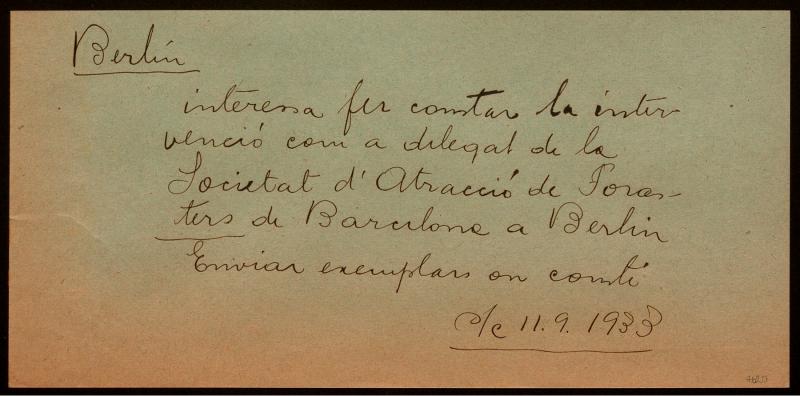 Berlín
interessa fer constar la inter-
venció com a delegat de la
Societat d'Atracció de Foras-
ters de Barcelona a Berlin
Enviar exemplars on consti
c/c 11.9.1933